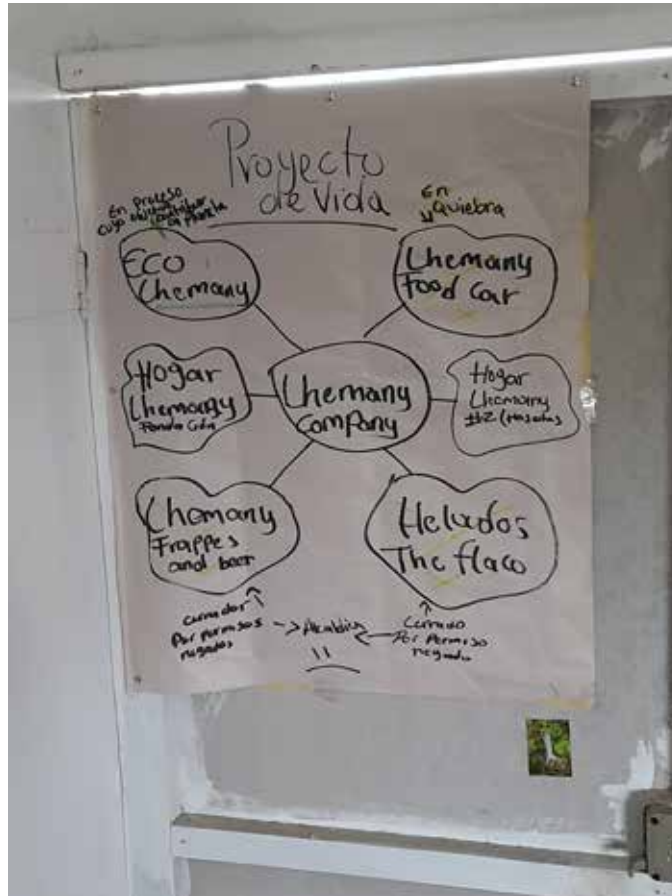 Proyecto
de Vida
En proceso
cuyo
contribuir
En
Quiebra
ECO
Chemany
Chemany
Food Car
Hogar
Chemany
Fundación
Chemany
Company
Hogar
Chemany
#2
Chemany
Frappes
and beer
Helados
The flaco
Por permisos
negados
Alcaldia
Cerrado
Por Permiso
negado